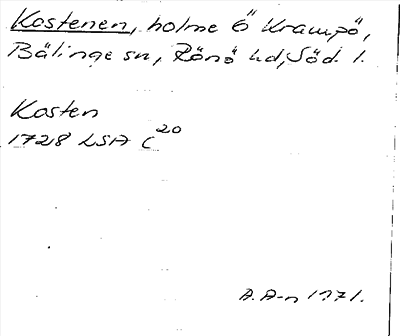 Kostenen, holme ö Krampö,
Bälinge sn, Rönö hd, Söd. l.
Kosten
1728 LSA C 20
A. A-n 1971.